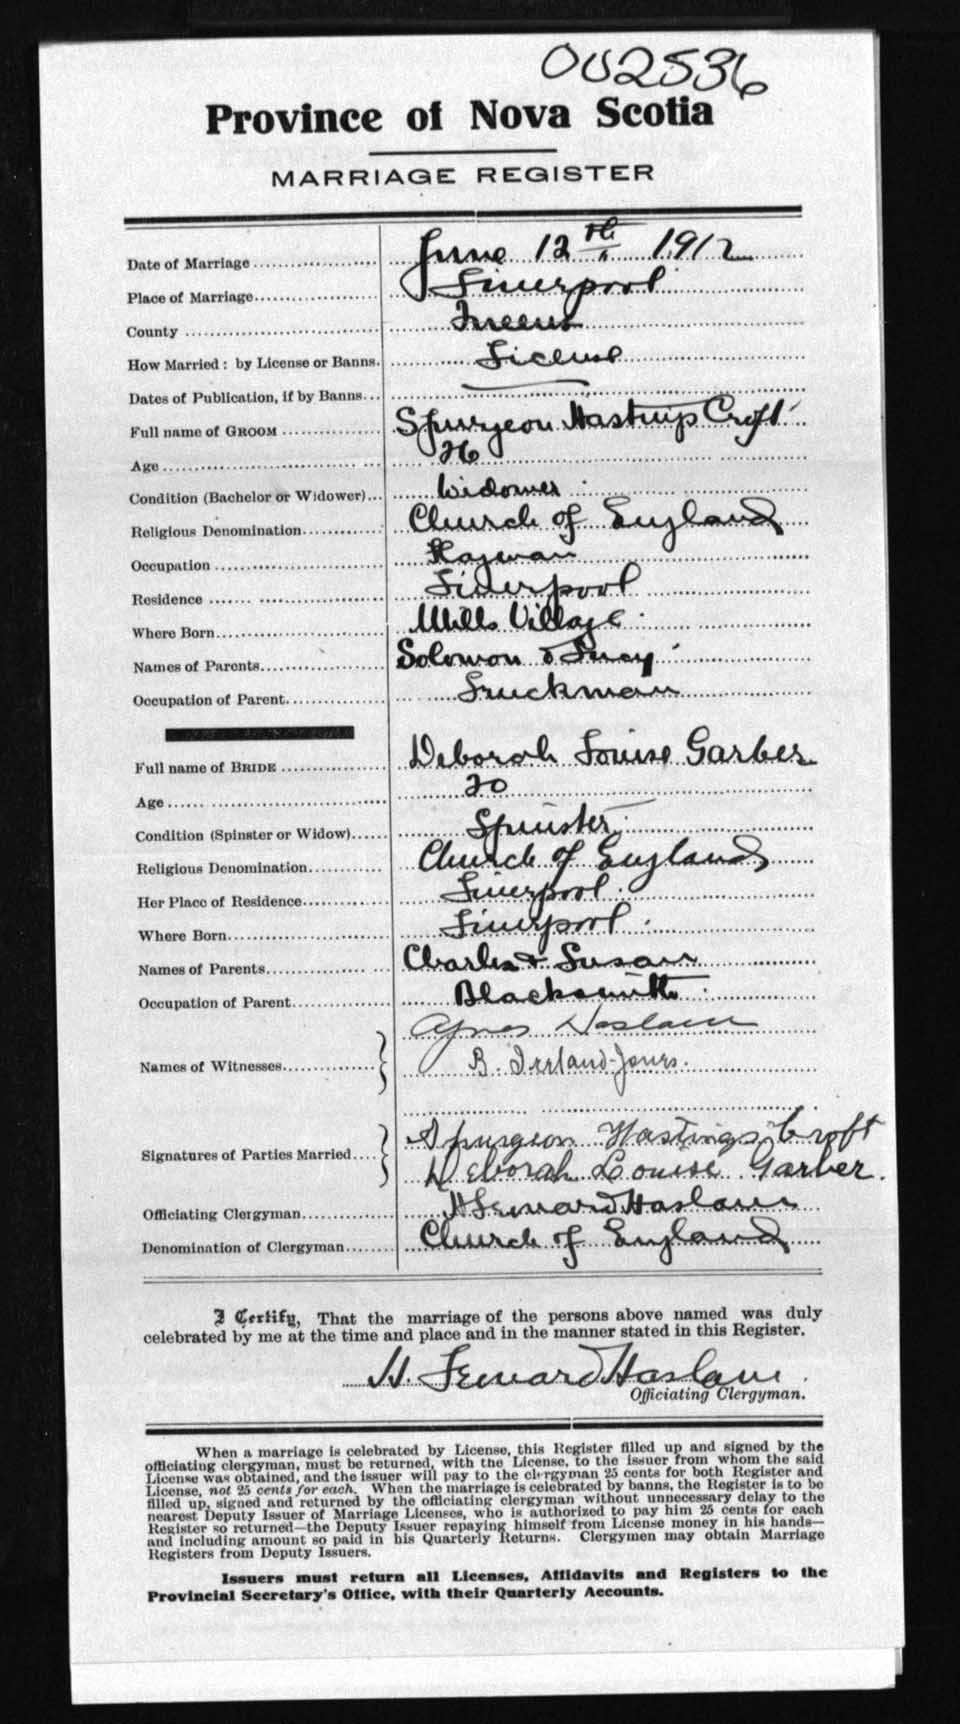 002536
Province of Nova Scotia
MARRIAGE REGISTER
Date of Marriage June 12th, 1912
Place of Marriage Liverpool
County Queens
How Married: by License or Banns. License
Dates of Publication, if by Banns
Full name of GROOM Spurgeon Hastings Croft
Age 26
Condition (Bachelor or Widower) Widower
Religious Denomination Church of England
Occupation
Residence Liverpool
Where Born Mills Village
Names of Parents Solomon & Lucy
Occupation of Parent Truckman
Full name of BRIDE Deborah Louise Garber
Age 20
Condition (Spinster or Widow) Spinster
Religious Denomination Church of England
Her Place of Residence Liverpool
Where Born Liverpool
Names of Parents Charles & Susan
Occupation of Parent Blacksmith
Agnes Haslam
Names of Witnesses B. Ireland-Jones.
Spurgeon Hastings Croft
Signatures of Parties Married
Deborah Louise Garber.
Officiating Clergyman H Leward Haslam
Denomination of Clergyman Church of England
I Certify, That the marriage of the persons above named was duly
celebrated by me at the time and place and in the manner stated in this Register.
H. Leward Haslam.
Officiating Clergyman.
When a marriage is celebrated by License, this Register filled up and signed by the
officiating clergyman, must be returned, with the License, to the issuer from whom the said
License was obtained, and the issuer will pay to the clergyman 25 cents for both Register and
License, not 25 cents for each. When the marriage is celebrated by banns, the Register is to be
filled up, signed and returned by the officiating clergyman without unnecessary delay to the
nearest Deputy Issuer of Marriage Licenses, who is authorized to pay him 25 cents for each
Register so returned—the Deputy Issuer repaying himself from License money in his hands—
and including amount so paid in his Quarterly Returns. Clergymen may obtain Marriage
Registers from Deputy Issuers.
Issuers must return all Licenses, Affidavits and Registers to the
Provincial Secretary's Office, with their Quarterly Accounts.